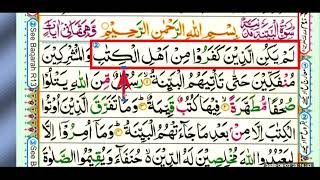 بِسْمِ اللّٰهِ الرَّحْمٰنِ الرَّحِيْمِ
لَمْ يَكُنِ الَّذِيْنَ كَفَرُوْا مِنْ اَهْلِ الْكِتٰبِ وَالْمُشْرِكِيْنَ
مُنْفَكِّيْنَ حَتّٰى تَاْتِيَهُمُ الْبَيِّنَةُ رَسُوْلٌ مِّنَ اللّٰهِ يَتْلُوْا
صُحُفًا مُّطَهَّرَةً فِيْهَا كُتُبٌ قَيِّمَةٌ وَمَا تَفَرَّقَ الَّذِيْنَ اُوْتُوا
الْكِتٰبَ اِلَّا مِنْ بَعْدِ مَا جَآءَتْهُمُ الْبَيِّنَةُ وَمَآ اُمِرُوْٓا اِلَّا
لِيَعْبُدُوا اللّٰهَ مُخْلِصِيْنَ لَهُ الدِّيْنَ حُنَفَآءَ وَيُقِيْمُوا الصَّلٰوةَ
See Baqarah R13